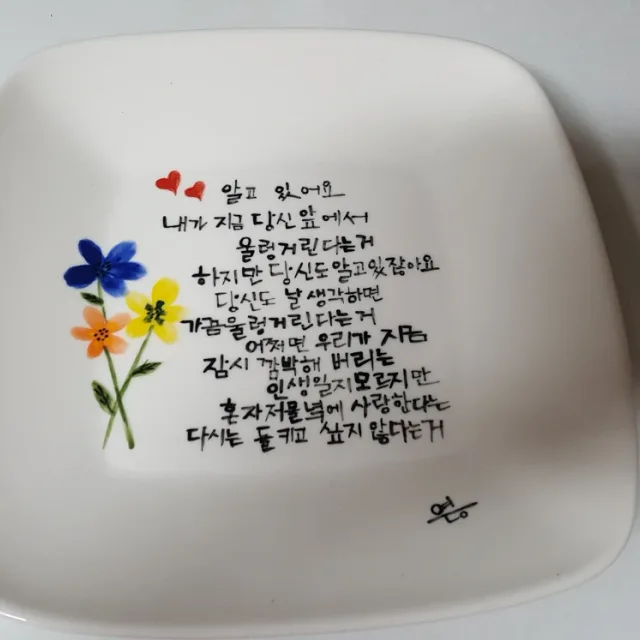 알고 있어요
내가 지금 당신 앞에서
울렁거린다는거
하지만 당신도 알고있잖아요
당신도 날 생각하면
가끔울렁거린다는거
어쩌면 우리가 지금
잠시 깜박해 버리는
인생일지모르지만
혼자저물녘에 사랑한다는
다시는 들키고 싶지 않다는거
연